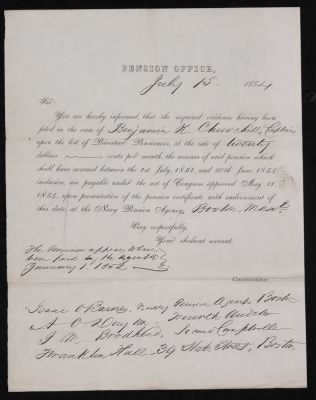 PENSION OFFICE,
July 15, 1854
Sir:
You are hereby informed, that the required evidence having been
filed in the case of Benjamin K. Churchill, Captain
upon the list of Privateer Pensioners, at the rate of twenty
dollars cents per month, the arrears of said pension which
shall have accrued between the 1st July, 1851, and 30th June, 1852
inclusive, are payable under the act of Congress approved May 31,
1854, upon presentation of the pension certificate with endorsement of
this date, at the Navy Pension Agency, Boston Mass.
Very respectfully,
Your obedient servant,
The Pensioner appears to have
been paid by the agent to
January 1. 1852
Commissioner.
Isaac O Barnes, Navy Pension Agent, Boston
A. O. Dayton Fourth Auditor
J. M. Brodhead, Second Comptroller
Franklin Hall, 39 State Street, Boston